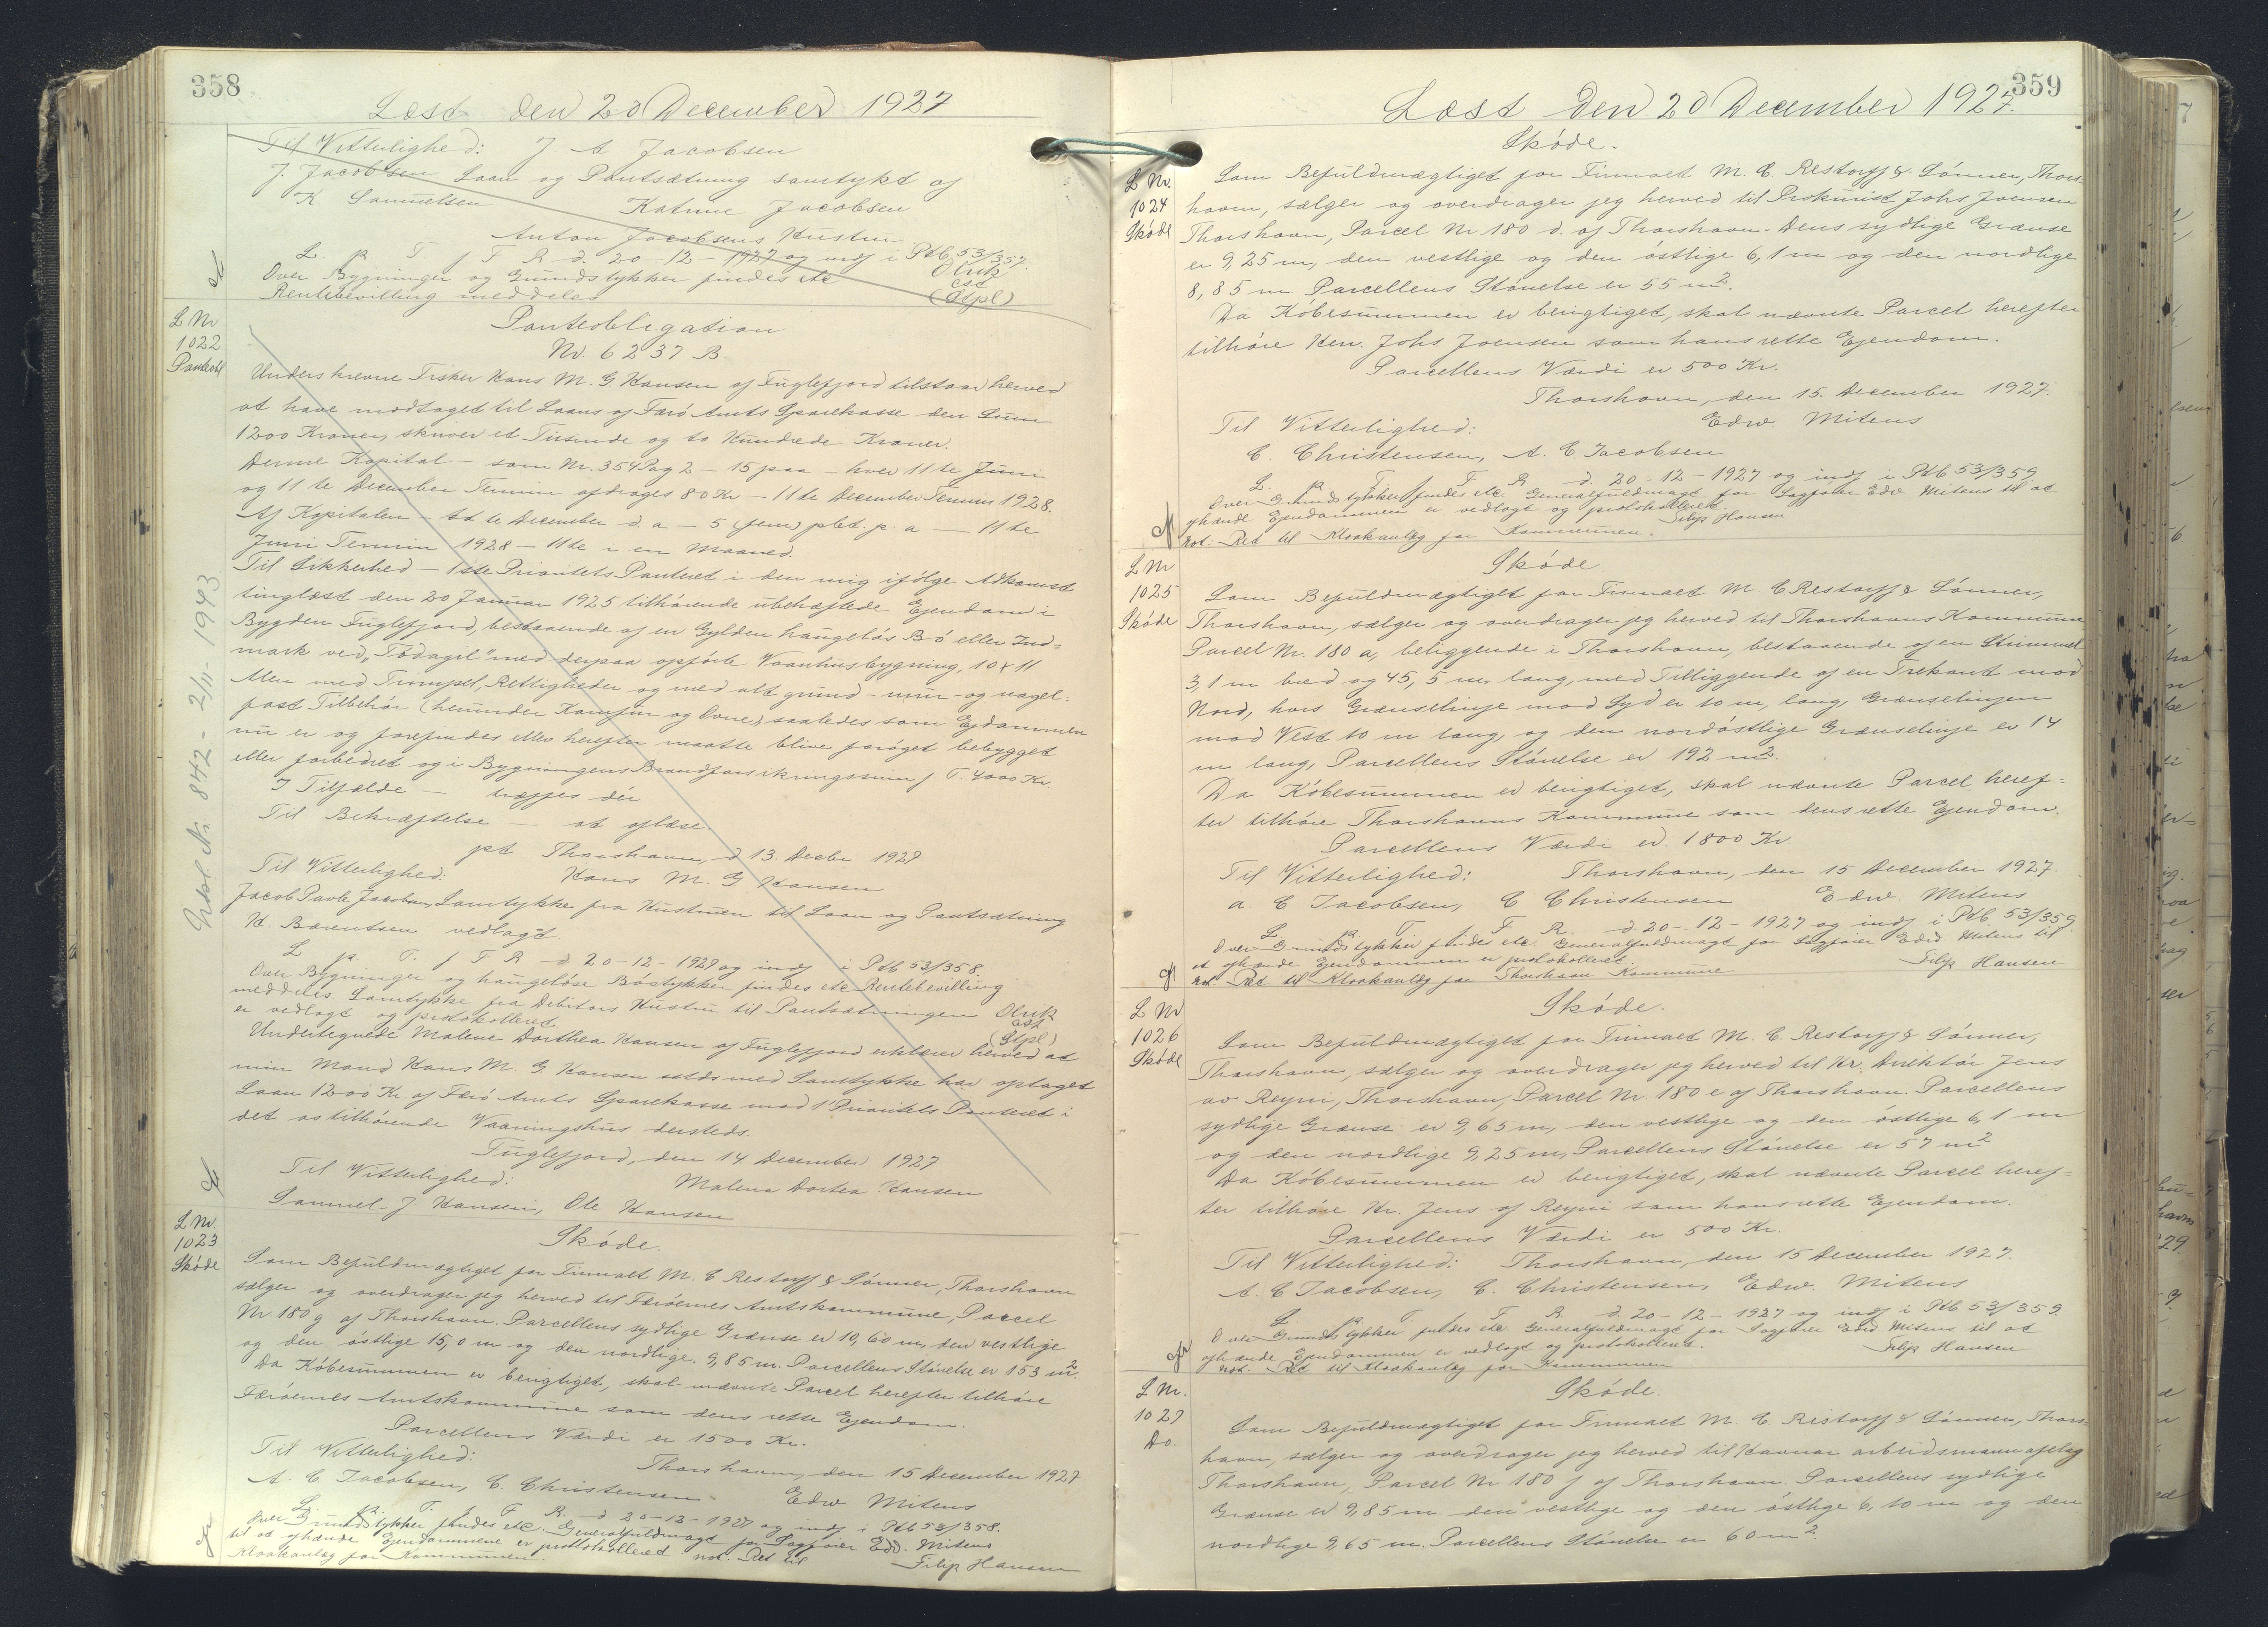 358
Læst den 20 December 1927
Til Vitterlighed: J A Jacobsen
J. Jacobsen Laan og Pantsætning samtykt af
K Samuelsen Katrine Jacobsen
Anton Jacobsens Hustru
L. p T f F R d. 20-12-1927 og indf i Ptb 53/357.
Over Bygninger og Grundstykker findes etc Olrik
Rentebevilling meddeles cst
(Stpl)
L Nr
1022
Panteobl
Panteobligation
Nr. 6237 B.
Underskrevne Fisker Hans M. G Hansen af Fuglefjord tilstaar herved
at have modtaget til Laans af Færö Amts Sparekasse den Sum
1200 Kroner, skriver et Tusinde og to Hundrede Kroner.
Denne Kapital – som Nr. 354 Pag 2 – 15 paa – hver 11te Juni
og 11te December Termin afdrages 80 Kr – 11te December Termin 1928.
Af Kapitalen – 11te December d. a – 5 (fem) pCt. p. a – 11te
Juni Termin 1928 – 11te i en Maaned.
Til Sikkerhed – 1ste Prioritets Panteret i den mig ifölge Adkomst
tinglæst den 20 Januar 1925 tilhörende ubehæftede Ejendom i
Bygden Fuglefjord, bestaaende af en Gylden haugelös Bö eller Ind=
mark ved "Tödagil" med derpaa opförte Vaanhusbygning, 10 x 11
Alen med Trumpel, Rettigheder og med alt grund- mur- og nagel-
fast Tilbehör (herunder Komfur og Ovne) saaledes som Ejdommen
nu er og forefindes eller herefter maatte blive foröget bebygget
eller forbedret og i Bygningens Brandforsikringssum f T. 4000 Kr
I Tilfælde – træffes dér
Til Bekræftelse – at aflæse.
pt Thorshavn, d 13. Decbr 1927
Til Vitterlighed: Hans M. G Hansen
Jacob Pavle Jacobsen, Samtykke fra Hustruen til Laan og Pantsætning
H. Barentsen vedlagt
L p T. f F R d 20-12-1927 og indf i Ptb 53/358.
Over Bygninger og haugelöse Böstykker findes etc Rentebevilling
meddeles. Samtykke fra Debitors Hustru til Pantsætningen Olrik
er vedlagt og protokolleret. cst
(Stpl)
Undertegnede Malene Dorthea Hansen af Fuglefjord erklærer herved at
min Mand Hans M. G. Hansen allds med Samtykke har optaget
Laan 1200 Kr af Færö Amts Sparekasse mod 1' Prioritets Panteret i
det os tilhörende Vaaningshus dersteds.
Fuglefjord, den 14 December 1927
Til Vitterlighed: Malena Dortea Hansen
Samuel J. Hansen, Ole Hansen
Gdsl. Nr. 842 - 2/11 - 1943
L Nr.
1023
Sköde
Sköde.
Som Befuldmægtiget for Firmaet M. C Restorff & Sönner, Thorshavn
sælger og overdrager jeg herved til Færöernes Amtskommune, Parcel
Nr 180 g af Thorshavn. Parcellens sydlige Grænse er 10,60 m, den vestlige
og den östlige 15,0 m og den nordlige. 9,85 m. Parcellens Störrelse er 153 m2.
Da Köbesummen er berigtiget, skal nævnte Parcel herefter tilhöre
Færöernes Amtskommune som dens rette Ejendom.
Parcellens Værdi er 1500 Kr.
Til Vitterlighed: Thorshavn, den 15 December 1927
A. C Jacobsen, C. Christensen Edw Mitens
L. p. T. f F R. d 20-12-1927 og indf i Ptb 53/358.
Over Grundstykker findes etc. Generalfuldmagt for Sagförer Edv. Mitens
til at afhænde Ejendommene er protokolleret not. Ret til
Kloakanlæg for Kommunen. Filip Hansen
359
Læst den 20 December 1927.
Sköde.
L Nr.
1024
Sköde
Som Befuldmægtiget for Firmaet M. C. Restorff & Sönner, Thors=
havn, sælger og overdrager jeg herved til Prokurist Johs Joensen
Thorshavn, Parcel Nr 180 d. af Thorshavn. Dens sydlige Grænse
er 9,25 m, den vestlige og den östlige 6,1 m og den nordlige
8,85 m Parcellens Störrelse er 55 m2.
Da Köbesummen er berigtiget, skal nævnte Parcel herefter
tilhöre Herr. Johs Joensen som hans rette Ejendom.
Parcellens Værdi er 500 Kr.
Thorshavn, den 15. December 1927.
Til Vitterlighed: Edw. Mitens
C. Christensen, A. C Jacobsen
L. p. T. f F R d. 20-12-1927 og indf i Ptb 53/359
Over Grundstykker findes etc Generalfuldmagt for Sagförer Edv Mitens til at
afhænde Ejendommen er vedlagt og protokolleret.
not: Ret til Kloakanlæg for Kommunen. Filip Hansen
Sköde.
L Nr
1025
Sköde
Som Befuldmægtiget for Firmaet M. C Restorff & Sönner,
Thorshavn, sælger og overdrager jeg herved til Thorshavns Kommune
Parcel Nr. 180 a, beliggende i Thorshavn, bestaaende af en Strimmel
3,1 m bred og 45,5 m, lang, med Tilliggende af en Trekant mod
Nord, hvis Grænselinje mod Syd er 10 m, lang, Grænselinjen
mod Vest 10 m lang, og den nordöstlige Grænselinje er 14
m lang, Parcellens Störrelse er 192 m2.
Da Köbesummen er berigtiget, skal nævnte Parcel heref=
ter tilhöre Thorshavns Kommune som dens rette Ejendom.
Parcellens Værdi er. 1800 Kr
Til Vitterlighed: Thorshavn, den 15 December 1927.
A. C Jacobsen, C Christensen Edw. Mitens
L. p. T. f F R. d 20-12-1927 og indf i Ptb 53/359.
Over Grundstykker findes etc. Generalfuldmagt for Sagförer Edv Mitens til
at afhænde Ejendommen er protokolleret.
not Ret til Kloakanlæg for Thorshavn Kommune. Filip Hansen
Sköde.
L Nr
1026
Sköde
Som Befuldmægtiget for Firmaet M. C. Restorff & Sönner,
Thorshavn, sælger og overdrager jeg herved til Hr. Direktör Jens
av Reyni, Thorshavn, Parcel Nr 180 e af Thorshavn. Parcellens
sydlige Grænse er 9,65 m, den vestlige og den östlige 6,1 m
og den nordlige 9,25 m, Parcellens Störrelse er 57 m2
Da Köbesummen er berigtiget, skal nævnte Parcel heref=
ter tilhöre Hr. Jens af Reyni som hans rette Ejendom.
Parcellens Værdi er 500 Kr.
Til Vitterlighed: Thorshavn, den 15 December 1927.
A. C Jacobsen, C. Christensen, Edw. Mitens
L. p. T. f F R d 20-12-1927 og indf i Ptb 53/359.
Over Grundstykker findes etc Generalfuldmagt for Sagförer Edv Mitens til at
afhænde Ejendommen er vedlagt og protokolleret. Filip Hansen
not. Ret til Kloakanlæg for Kommunen
Sköde.
L Nr.
1027
Do.
Som Befuldmægtiget for Firmaet M. C Restorff & Sönner, Thors=
havn, sælger og overdrager jeg herved til Havnar arbeidsmannafelag
Thorshavn, Parcel Nr. 180 f af Thorshavn. Parcellens sydlige
Grænse er 9,85 m den vestlige og den östlige 6,10 m og den
nordlige 9,65 m. Parcellens Störrelse er 60 m2.